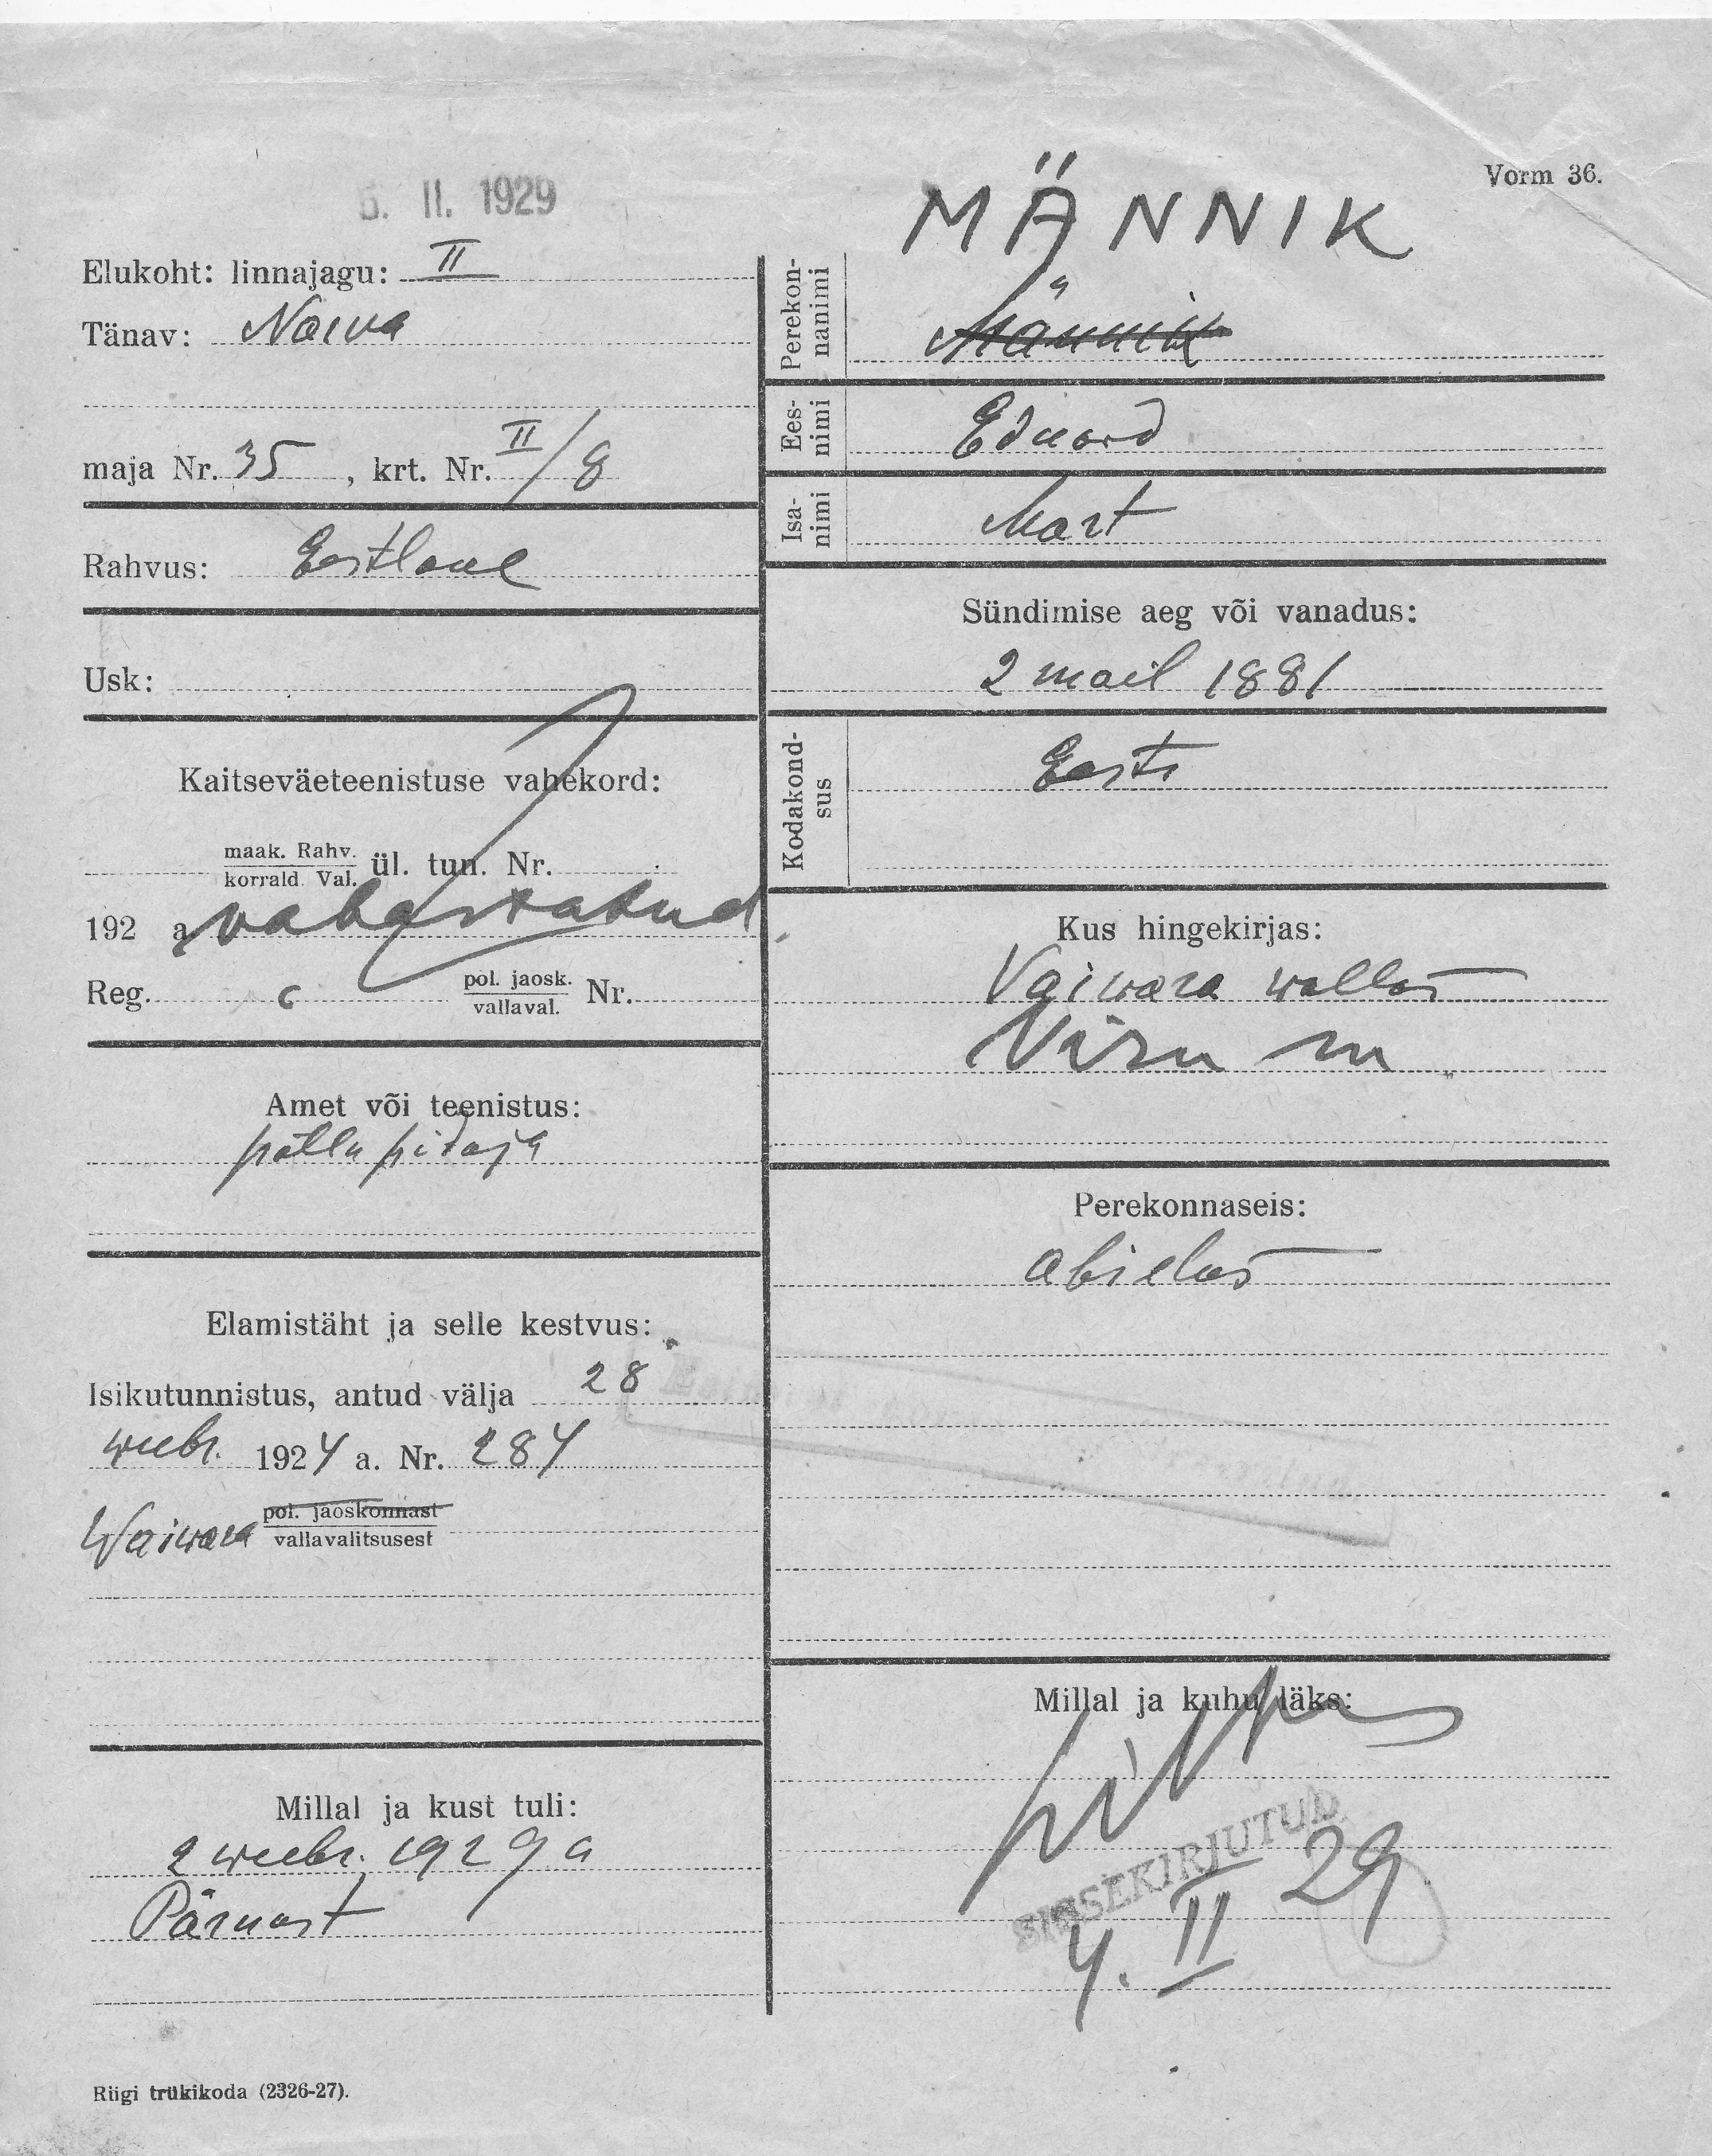 Vorm 36.
5. II. 1929
MÄNNIK
Elukoht: linnajagu: II
Tänav: Narva
maja Nr. 35, krt. Nr. II/8
Rahvus: Eestlane
Usk:
Kaitseväeteenistuse vahekord:
maak. Rahv.
korrald. Val. ül. tun. Nr.
192 a. vabastatud
Reg. pol. jaosk.
vallaval. Nr.
Amet või teenistus:
põllu pidaja
Elamistäht ja selle kestvus:
Isikutunnistus, antud välja 28
weebr. 1924 a. Nr. 284
Waiwara pol. jaoskonnast
vallavalitsusest
Millal ja kust tuli:
2 weebr. 1929 a
Pärnust
Riigi trükikoda (2326-27).
Perekon-
nanimi Männik
Ees-
nimi Eduard
Isa-
nimi Mart
Sündimise aeg või vanadus:
2 mail 1881
Kodakond-
sus Eesti
Kus hingekirjas:
Vaiwara wallas
Viru m
Perekonnaseis:
abielus
Millal ja kuhu läks:
SISSEKIRJUTUD
4. II 29